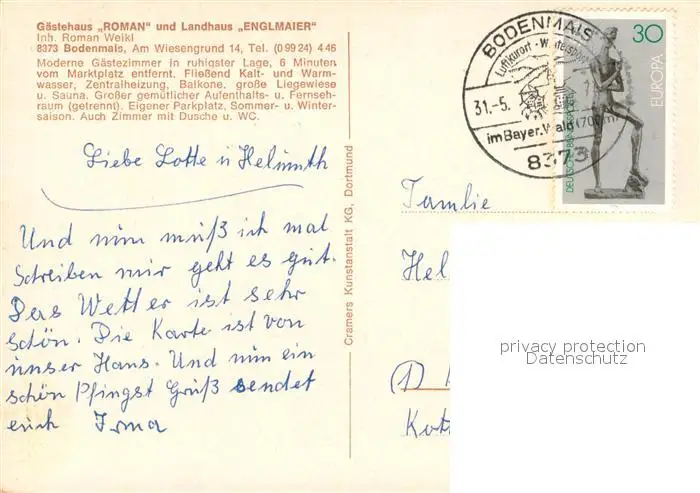 Gästehaus „ROMAN" und Landhaus „ENGLMAIER"
Inh. Roman Weikl
8373 Bodenmais, Am Wiesengrund 14, Tel. (0 99 24) 4 46
Moderne Gästezimmer in ruhigster Lage, 6 Minuten
vom Marktplatz entfernt. Fließend Kalt- und Warm-
wasser, Zentralheizung, Balkone, große Liegewiese
u. Sauna. Großer gemütlicher Aufenthalts- u. Fernseh-
raum (getrennt). Eigener Parkplatz, Sommer- u. Winter-
saison. Auch Zimmer mit Dusche u. WC.
Liebe Lotte u Helmuth
Und nun muß ich mal
Schreiben mir geht es gut.
Das Wetter ist sehr
schön. Die Karte ist von
unser Hans. Und nun ein
schön Pfingst Gruß sendet
euch Irma
Cramers Kunstanstalt KG, Dortmund
BODENMAIS
Luftkurort - Wintersport
31.-5.
im Bayer. Wald (700m)
8373
30
EUROPA
DEUTSCHE BUNDESPOST
Familie
Hel
(D)
privacy protection
Datenschutz